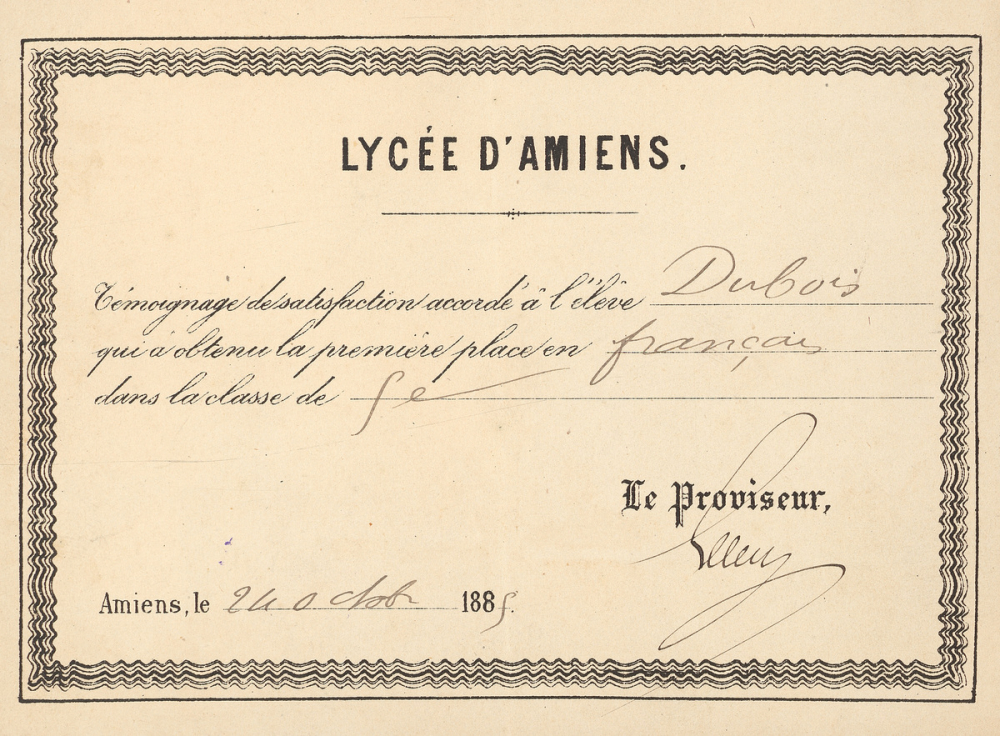 LYCÉE D'AMIENS.
Témoignage de satisfaction accordé à l'élève Dubois
qui a obtenu la première place en français
dans la classe de 5e
Le Proviseur,
Amiens, le 24 octobr 1885.